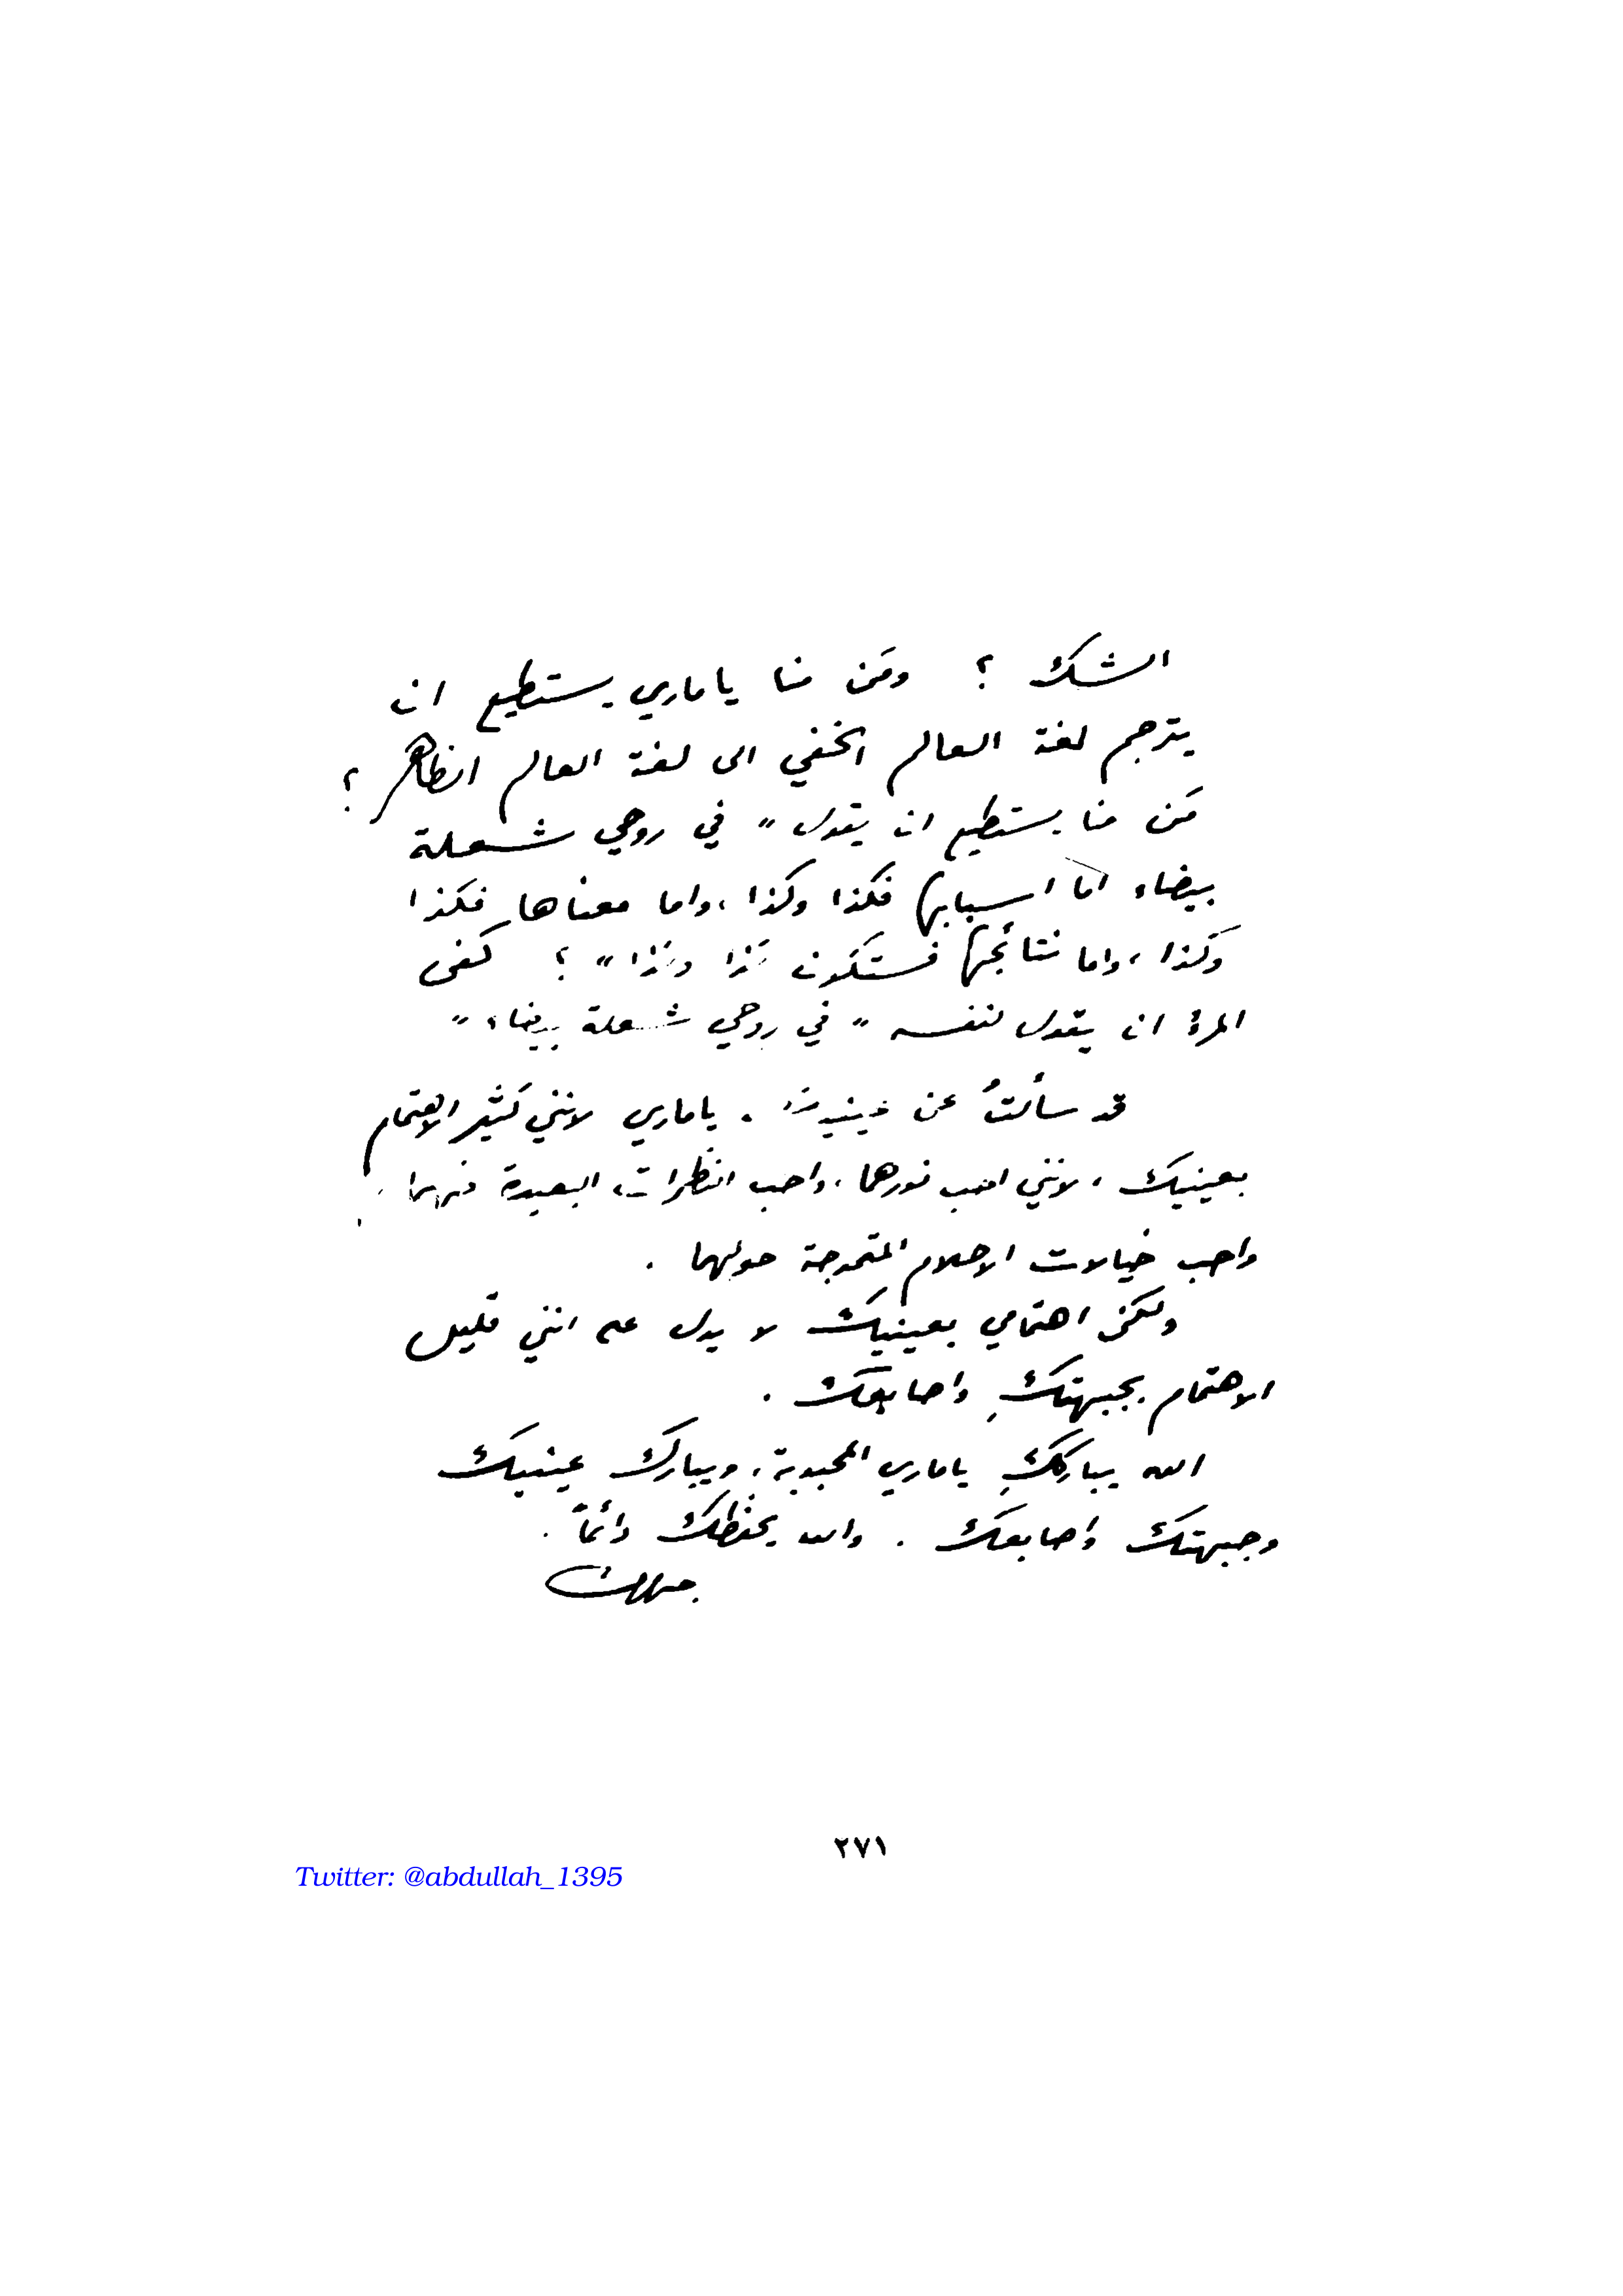 الشك ؟ ومَن منا يا ماري يستطيع ان
يترجم لغة العالم الخفي الى لغة العالم الظاهر ؟
مَن منا يستطيع ان يقول " في روحي شعلة
بيضاء امّا اسبابها فكذا وكذا ، واما معناها فكذا
وكذا ، واما نتائجها فستكون كذا وكذا " ؟ كفى
المرءُ ان يقول لنفسه " في روحي شعلة بيضاء "
قد سألتُ عن عينيك . يا ماري لانني كثير الاهتمام
بعينيك ، لانني احب نورهما ، واحب النظرات البعيدة فيهما ،
واحب خيالات الاحلام المتموجة حولهما .
ولكن اهتمامي بعينيك لا يدل على انني قليل
الاهتمام بجبهتكِ واصابعك .
الله يباركِكِ يا ماري المحبوبة ، ويبارك عينيك
وجبهتك واصابعك . والله يحفظك دائماً .
جبران
٢٧١
Twitter: @abdullah_1395